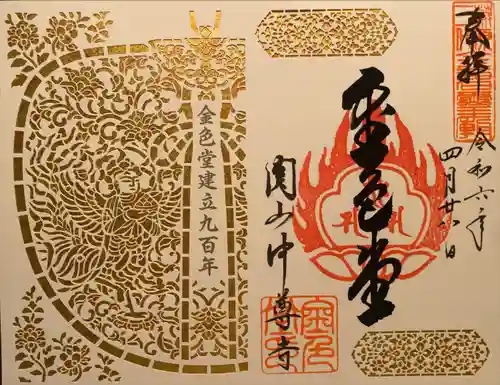 奉拝
令和六年
四月廿六日
金色堂
関山中尊寺
金色堂建立九百年